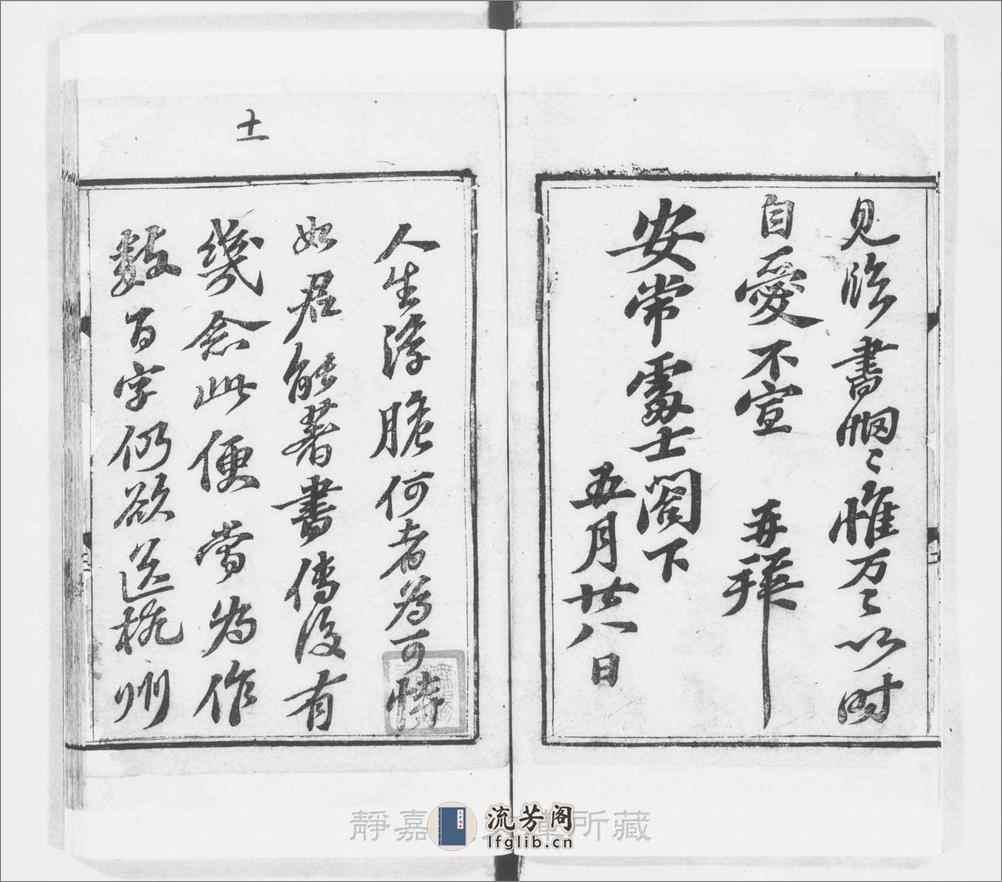 見臨書惘〻惟万〻以时
自愛不宣 再拜
安常處士閣下
五月廿八日
人生浮脆何者為可恃
如君能著書傳後有
幾念此便當為作
數百字仍欲送杭州
十一
靜嘉堂文庫所藏
流芳阁
lfglib.cn